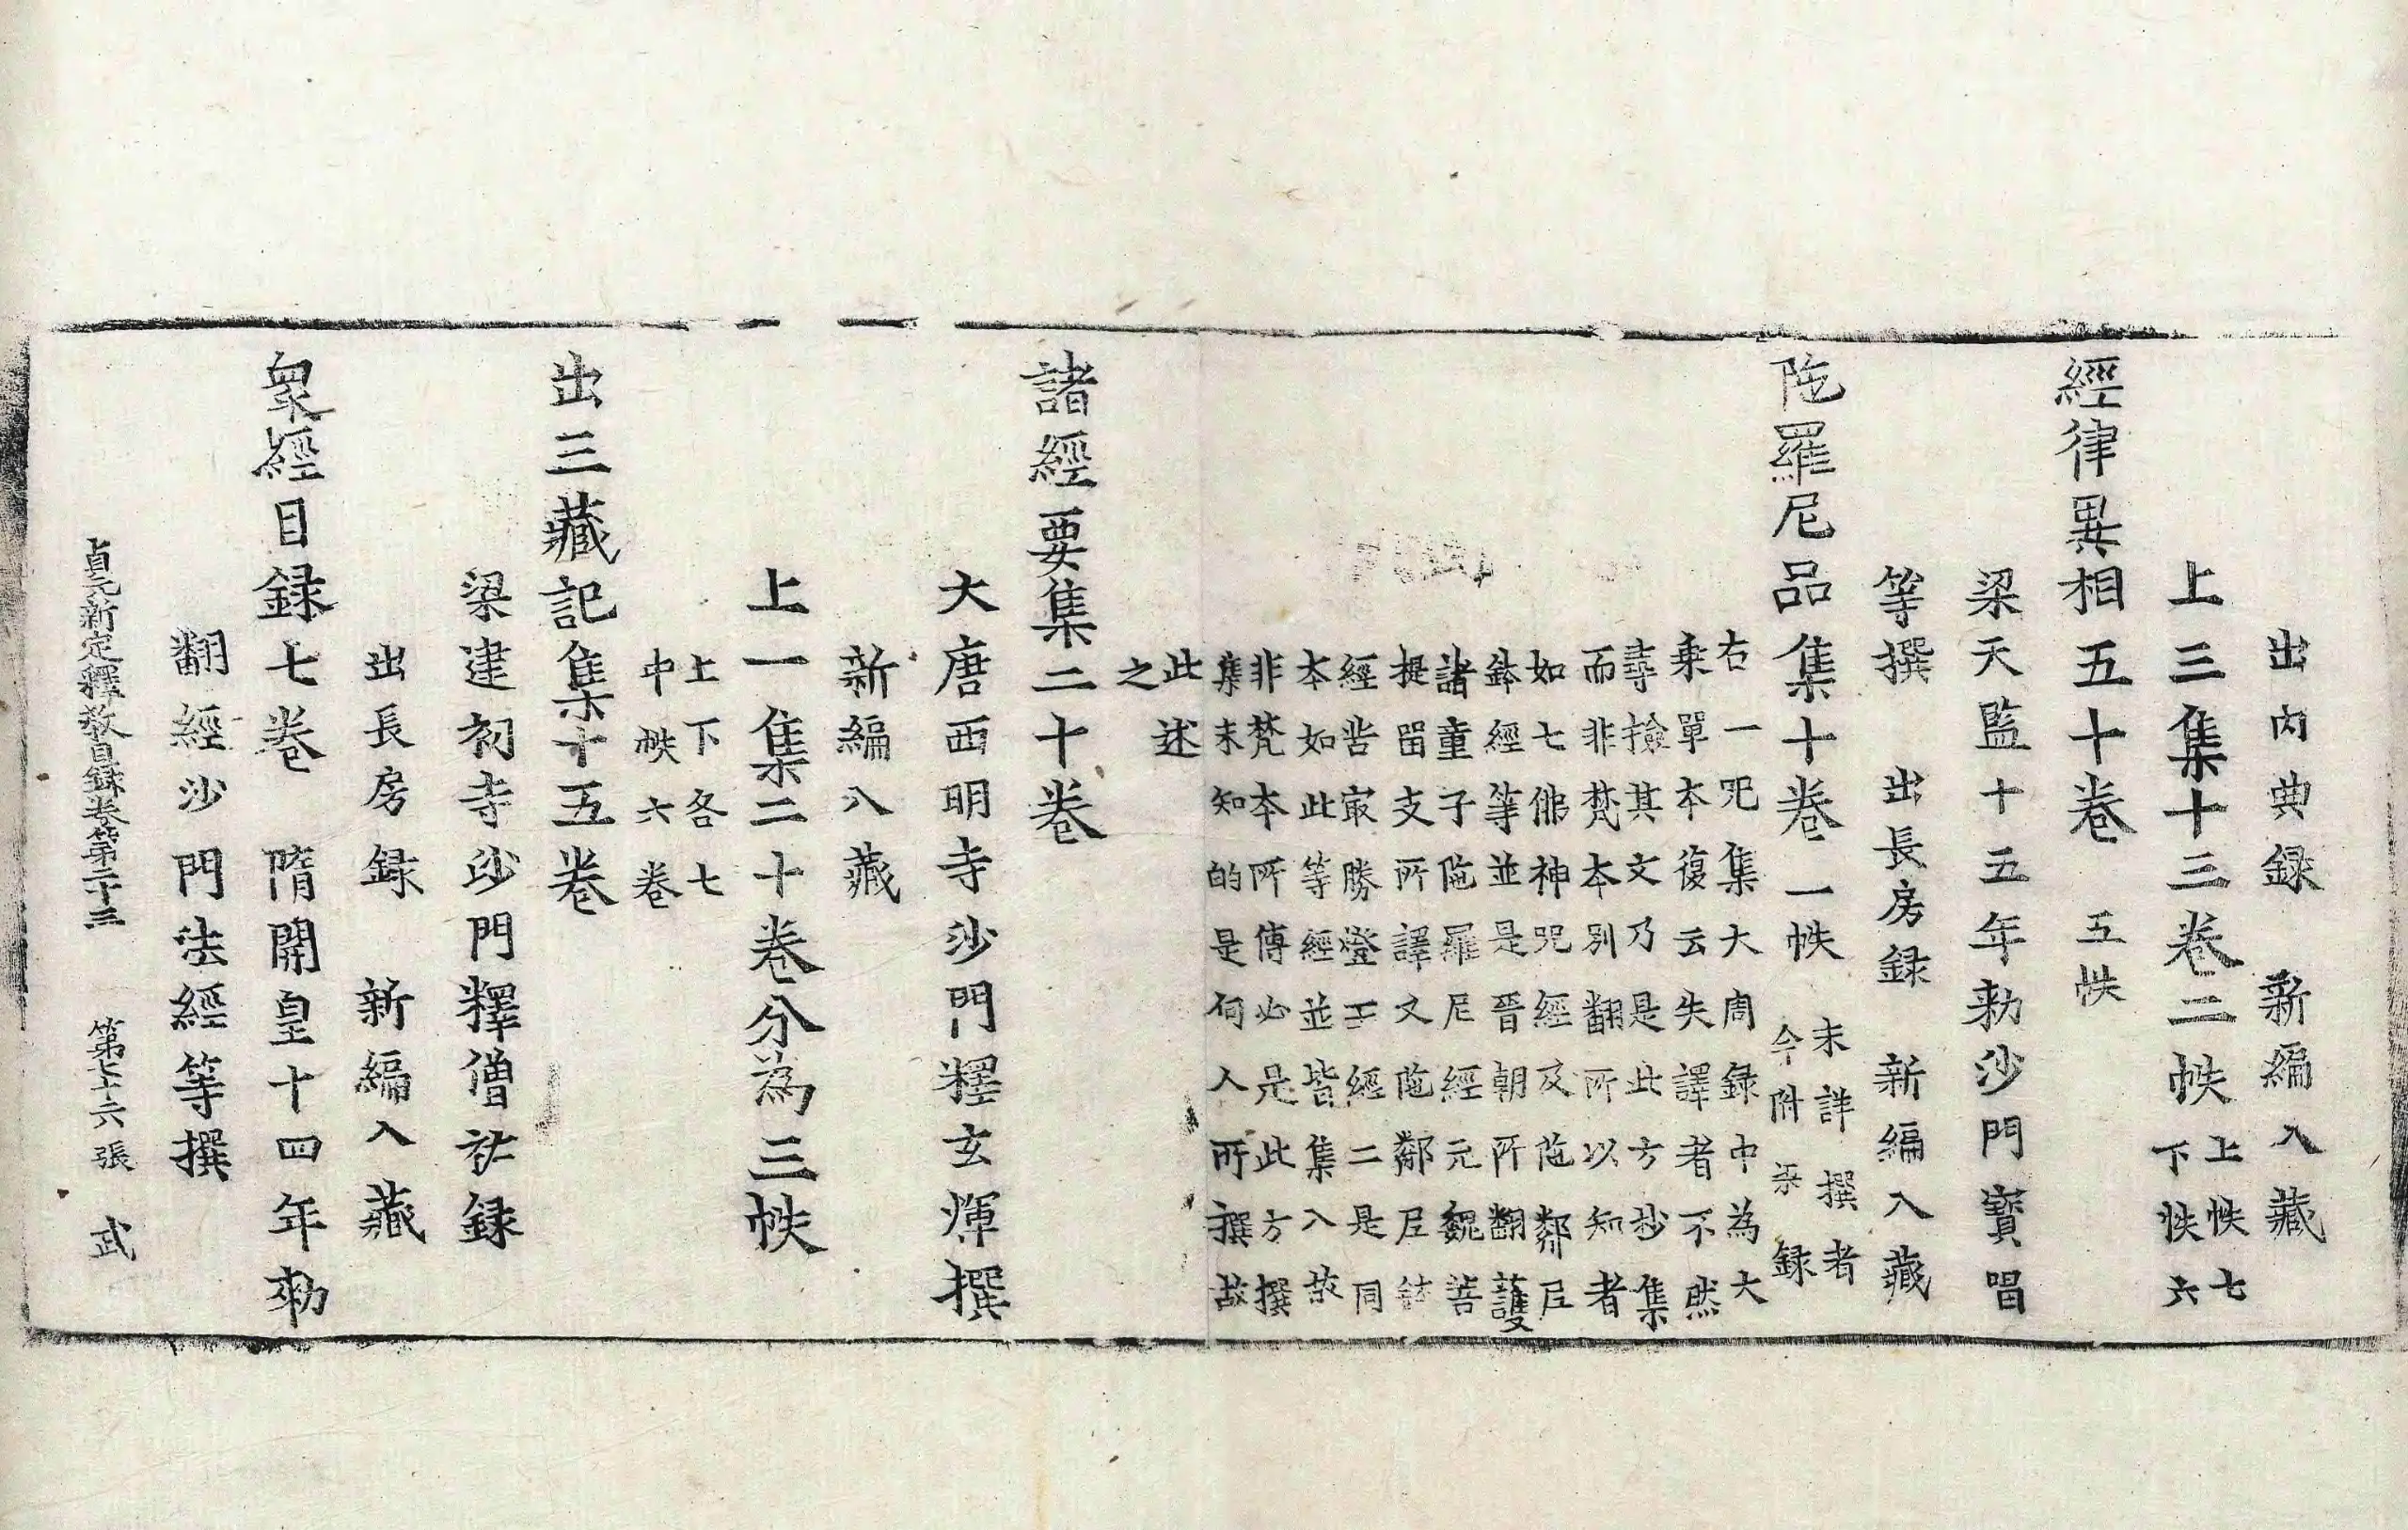 出内典録　新編入藏
上三集十三卷二帙上帙七
下帙六
經律異相五十卷　五帙
梁天監十五年勑沙門寶唱
等撰　出長房録　新編入藏
陁羅尼品集十卷一帙　未詳撰者
今附梁録
右一呪集大周録中為大
乗單本復云失譯者不然
尋撿其文乃是此方抄集
而非梵本別翻所以知者
如七佛神呪經及陁鄰尼
鉢經等並是晉朝所翻護
諸童子陁羅尼經元魏菩
提留支所譯又陁鄰尼鉢
經㫖㝡勝燈王經二是同
本如此等經並皆集入故
非梵本所傳必是此方撰
集未知的是何人所撰故
此述
之
諸經要集二十卷
大唐西明寺沙門釋玄煇撰
新編入藏
上一集二十卷分為三帙
上下各七
中帙六卷
出三藏記集十五卷
梁建初寺沙門釋僧祐録
出長房録　新編入藏
衆經目録七卷　隋開皇十四年勑
翻經沙門法經等撰
貞元新定釋教目録卷第二十三　第七十六張　武